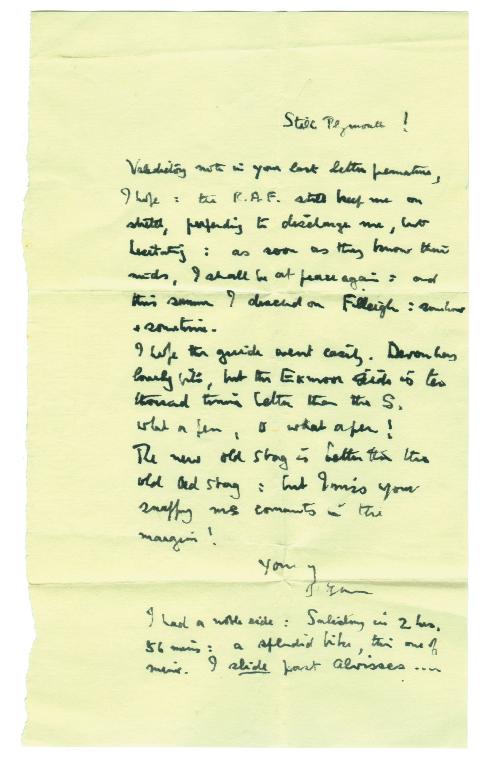 Still Plymouth!
Valedictory note in your last letter premature,
I hope: the R.A.F. still keep me on
stretch, pretending to discharge me, but
hesitating: as soon as they know their
minds, I shall be at peace again: and
this summer I descend on Filleigh: somehow
+ sometime.
I hope the guide went easily. Devon has
lovely bits, but the Exmoor side is ten
thousand times better than the S.
what a pen, O what a pen!
The new old stag is better than the
old Red stag: but I miss your
snappy MS comments in the
margin!
Yours

I had a noble ride: Salisbury in 2 hrs.
56 mins: a splendid bike, this one of
mine. I slide past Alvisses ....